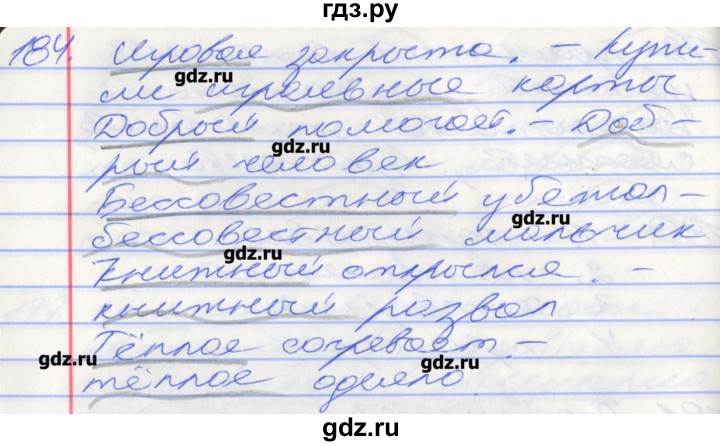 гдз.ру
184. Игровая закрыта. – Купи-
ли игральные карты.
Добрый помогает. – Доб-
рый человек
Бессовестный убежал –
бессовестный мальчик
Книжный открылся. –
книжный развал
Тёплое согревает. –
тёплое одеяло
gdz.ru
gdz.ru
gdz.ru
gdz.ru
gdz.ru
gdz.ru
gdz.ru
gdz.ru